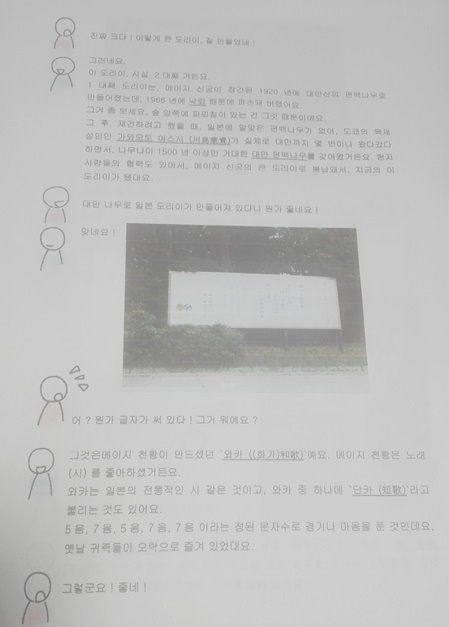 진짜 크다 ! 이렇게 큰 도리이, 잘 만들었네 !
그러네요.
이 도리이, 사실 2 대째 거든요.
1 대째 도리이는, 메이지 신궁이 창건된 1920 년에 대만산의 편백나무로
만들어졌는데, 1966 년에 낙뢰 때문에 파손돼 버렸어요.
그거 좀 보세요, 숲 양쪽에 피뢰침이 있는 건 그것 때문이에요.
그 후, 재건하려고 했을 때, 일본에 알맞은 편백나무가 없어, 도쿄의 목재
상인인 가와모토 야스시 가 실제로 대만까지 몇 번이나 왔다갔다
하면서, 나무나이 1500 년 이상인 거대한 대만 편백나무를 찾아왔거든요. 현지
사람들의 협력도 있어서, 메이지 신궁의 큰 도리이로 봉납돼서, 지금의 이
도리이가 됐대요.
대만 나무로 일본 도리이가 만들어져 있다니 뭔가 좋네요 !
맞네요 !
어 ? 뭔가 글자가 써 있다 ! 그거 뭐에요 ?
그것은메이지 천황이 만드셨던 '와카 ((화가)和歌)'예요. 메이지 천황은 노래
(시) 를 좋아하셨거든요.
와카는 일본의 전통적인 시 같은 것이고, 와카 중 하나에 '단카 (短歌)'라고
불리는 것도 있어요.
5 음, 7 음, 5 음, 7 음, 7 음 이라는 정된 문자수로 경기나 마음을 푼 것인데요,
옛날 귀족들이 오락으로 즐겨 있었대요.
그렇군요 ! 좋네 !